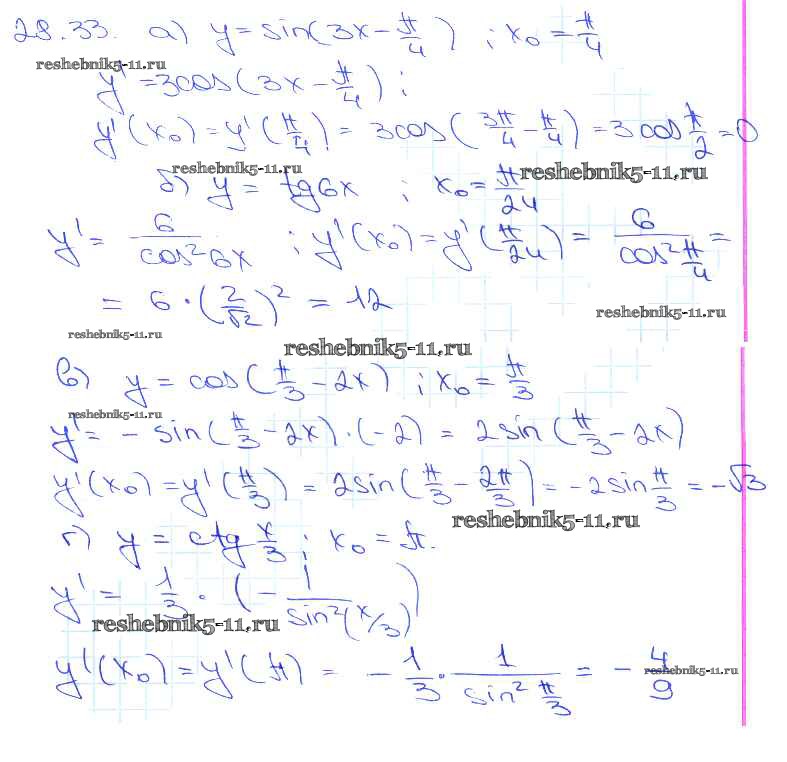 28.33. а) y = sin(3x - π/4) ; x₀ = π/4
reshebnik5-11.ru
y' = 3cos(3x - π/4) ;
y'(x₀) = y'(π/4) = 3cos(3π/4 - π/4) = 3cos π/2 = 0
reshebnik5-11.ru
reshebnik5-11.ru
б) y = tg6x ; x₀ = π/24
y' = 6/cos²6x ; y'(x₀) = y'(π/24) = 6/cos² π/4 =
= 6 · (2/√2)² = 12
reshebnik5-11.ru
reshebnik5-11.ru
reshebnik5-11.ru
в) y = cos(π/3 - 2x) ; x₀ = π/3
reshebnik5-11.ru
y' = - sin(π/3 - 2x) · (-2) = 2sin(π/3 - 2x)
y'(x₀) = y'(π/3) = 2sin(π/3 - 2π/3) = -2sin π/3 = -√3
reshebnik5-11.ru
г) y = ctg x/3 ; x₀ = π.
y' = 1/3 · (- 1/sin²(x/3))
reshebnik5-11.ru
y'(x₀) = y'(π) = - 1/3 · 1/sin² π/3 = - 4/9
reshebnik5-11.ru